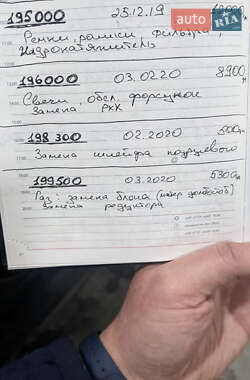 AUTO.RIA
195000 25.12.19
Ремни, ролики, фильтра,
Гидронатяжитель
196000 03.02.20 8900
Свечи, обсл. форсунок
Замена РКК
198 300 02.2020 500
Замена шлейфа подрулевого
199500 03.2020 5300
Раз: замена блока
Замена редуктора